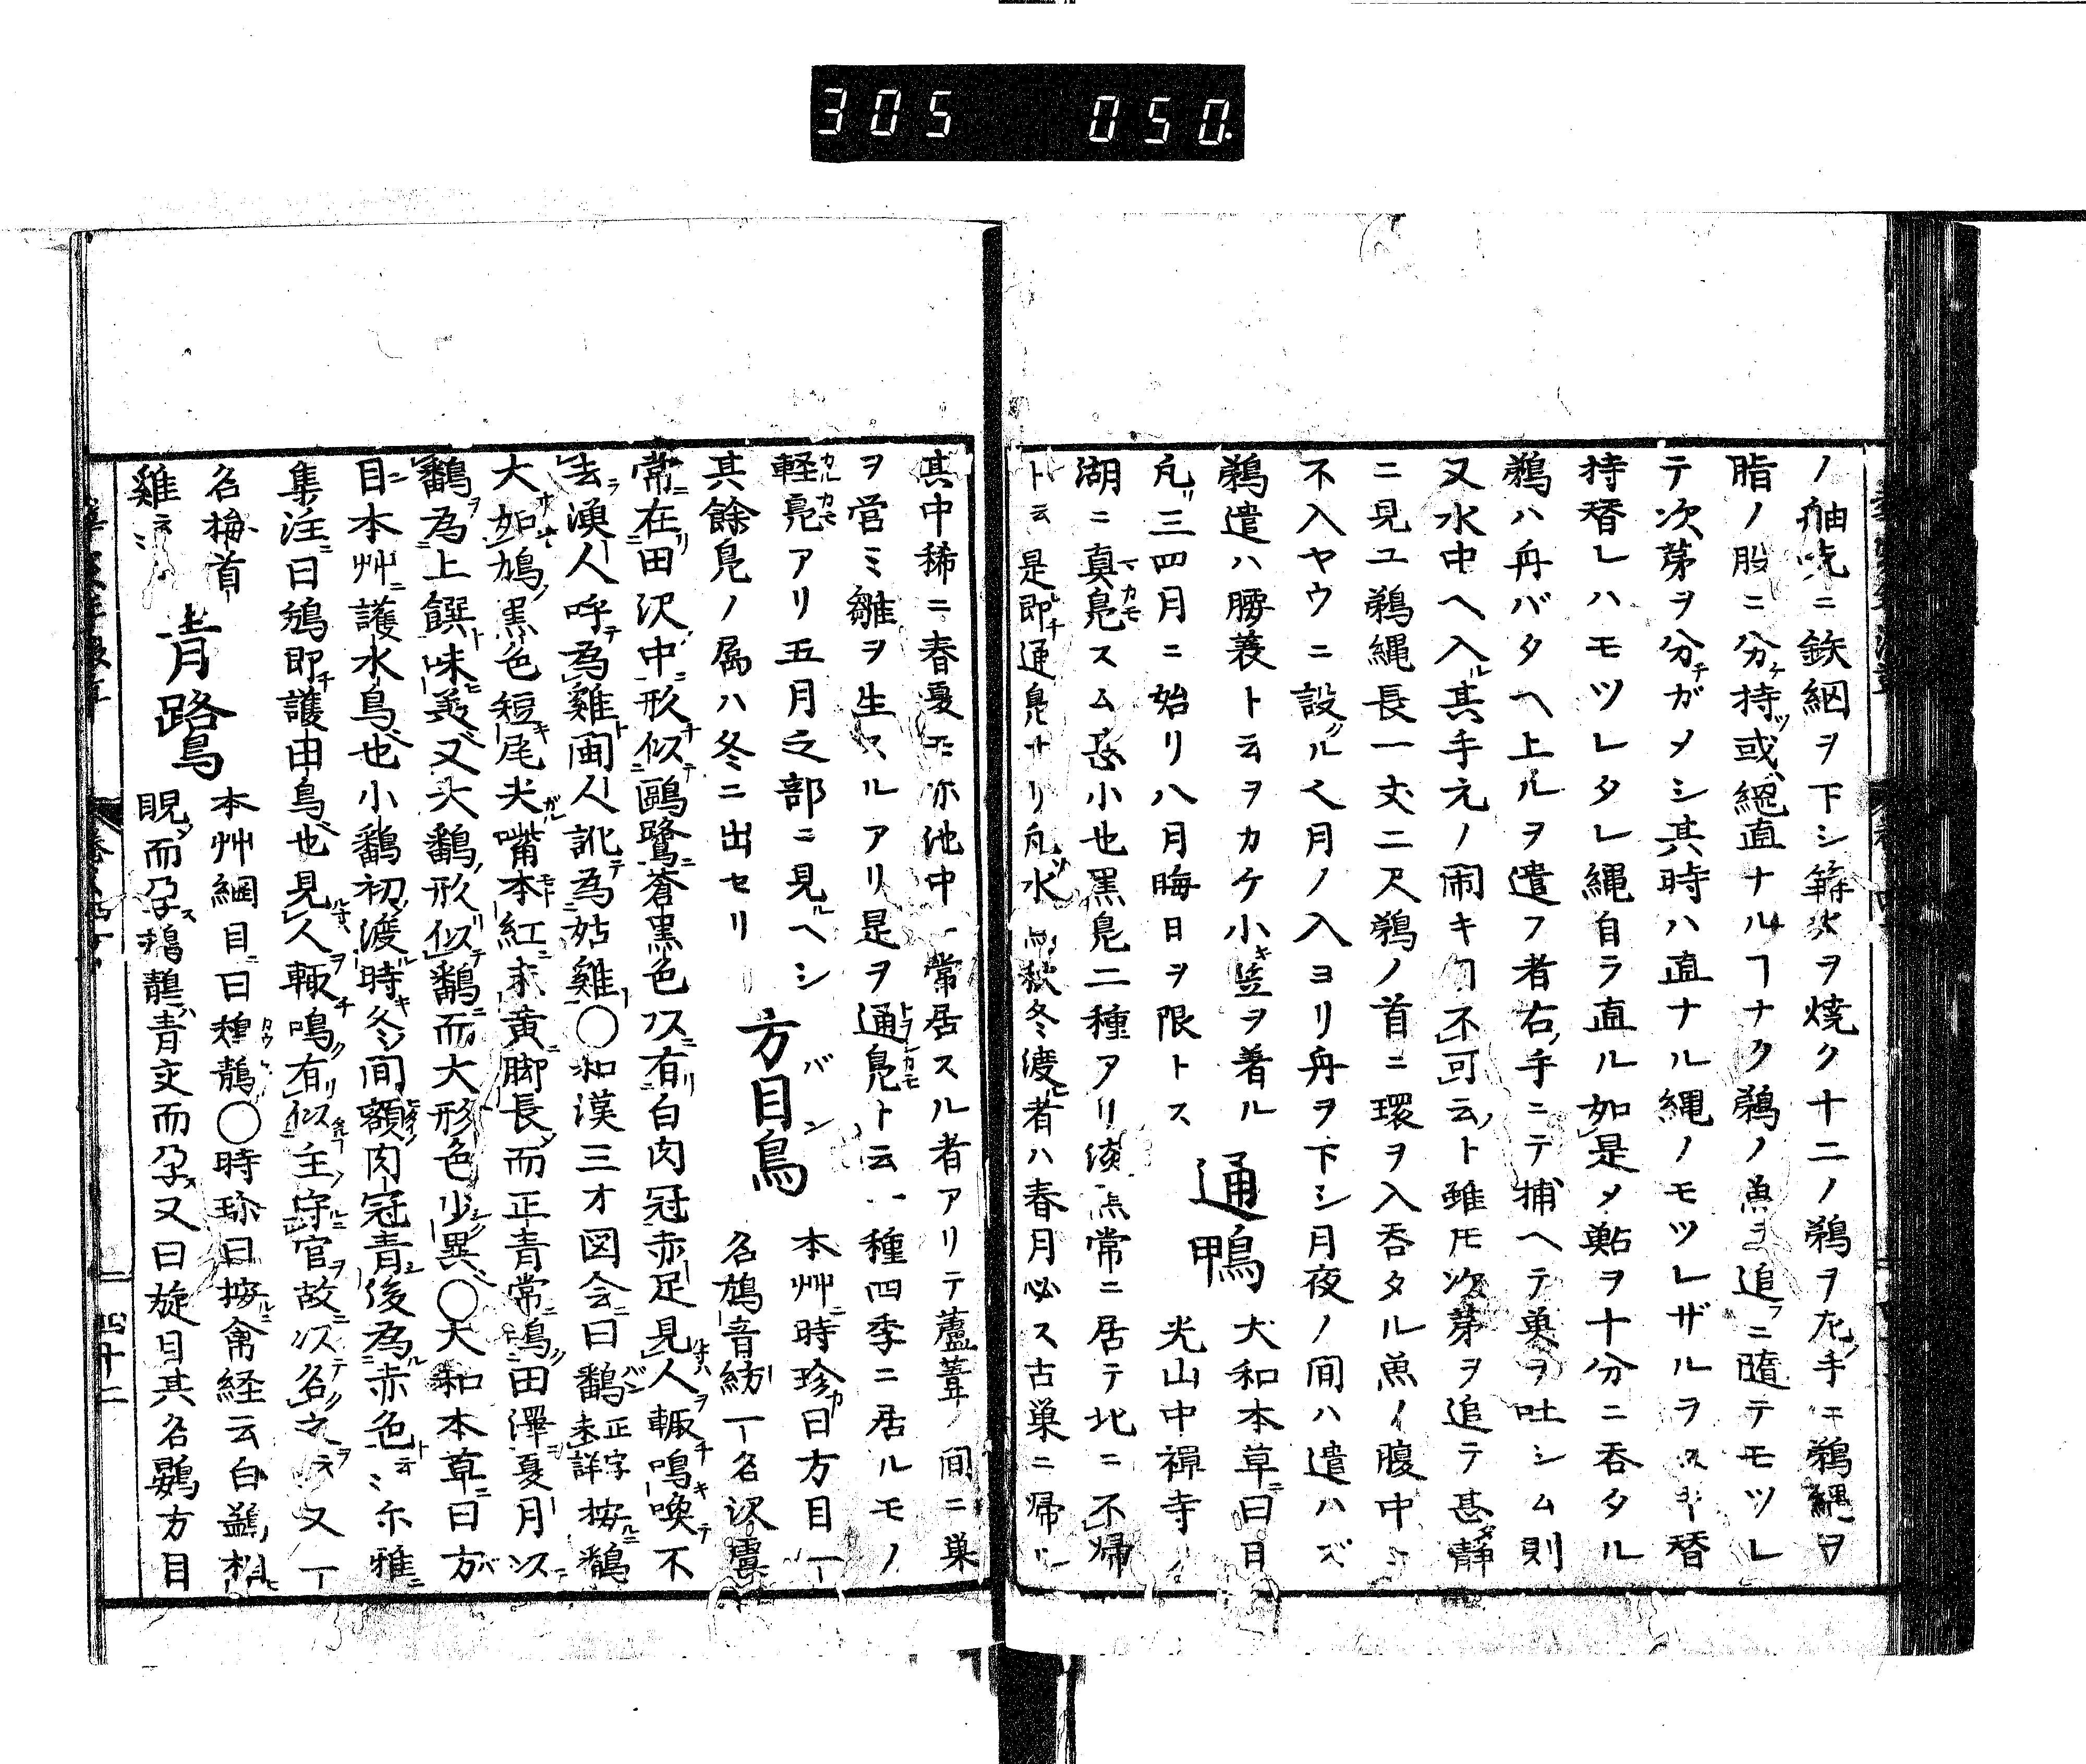 305 050.
ノ舳先ニ鉄網ヲ下シ篝火ヲ焼ク十二ノ鵜ヲ左手ニ鵜縄ヲ
脂ノ股ニ分ケ持ツ或ハ縄直ナルヿナク鵜ノ魚ヲ追フニ随テモツレ
テ次第ヲ分チガメシ其時ハ直ナル縄ノモツレザルヲ替
持替レハモツレタレ縄自ラ直ル如是メ鮎ヲ十分ニ吞タル
鵜ハ舟バタヘ上ルヲ遣フ者右ノ手ニテ捕ヘテ巣ヲ吐シム則
又水中ヘ入ル其手元ノ閙キヿ不可云ト雖モ次第ヲ追テ甚静
ニ見ユ鵜縄長一丈二尺鵜ノ首ニ環ヲ入吞タル魚イ腹中ニ
不入ヤウニ設ル之月ノ入ヨリ舟ヲ下シ月夜ノ間ハ遣ハズ
鵜遣ハ腰蓑ト云ヲカケ小キ笠ヲ着ル
凡ソ三四月ニ始リ八月晦日ヲ限トス
通鴨
大和本草ニ曰日
光山中禅寺ノ
湖ニ真鳬スム甚小也黒鳬二種アリ淡点常ニ居テ北ニ不帰
ト云是即チ通鳬ナリ凡ソ水鳥秋冬渡ル者ハ春月必ス古巣ニ帰ル
其中稀ニ春夏モ亦池中ニ常居スル者アリテ蘆葦ノ間ニ巣
ヲ営ミ雛ヲ生スルアリ是ヲ通鳬ト云一種四季ニ居ルモノ
軽鳬アリ五月之部ニ見ルヘシ
其餘鳬ノ属ハ冬ニ出セリ
方目鳥
バン
本艸ニ時珍カ曰方目一
名鴋音紡一名沢虞
常ニ在リ田沢中ニ形チ似テ鷗鷺ニ蒼黒色以有リ白肉冠赤足見人輙鳴喚不
去漁人呼テ為雞ト閩人訛テ為姑雞○和漢三才図会ニ曰鷭正字未詳按ルニ鷭
大如鳩ノ黒色短キ尾尖ル嘴本紅ニ末黄脚長メ而正青常ニ鳴田澤夏月以テ
鷭ヲ為上饌ト味美又大鷭形似テ鷭ニ而大形色少異○大和本草ニ曰方
目本艸ニ護水鳥也小鷭初渡ル時キ冬ノ間額肉冠青後為赤色ト云ミ尓雅
集注ニ曰鴋即チ護田鳥也見人ヲ輙チ鳴ク有リ似主守ルニ官ヲ故ニ以テ名クト之ヲ云又一
名梅首
雞云云
青鷺
本艸綱目ニ曰䴔鶄○時珍曰按ルニ禽経云白鷁相
睨メ而孕ス䴔鶄ハ青交而孕ス又曰旋目其名鷃方目
四十二